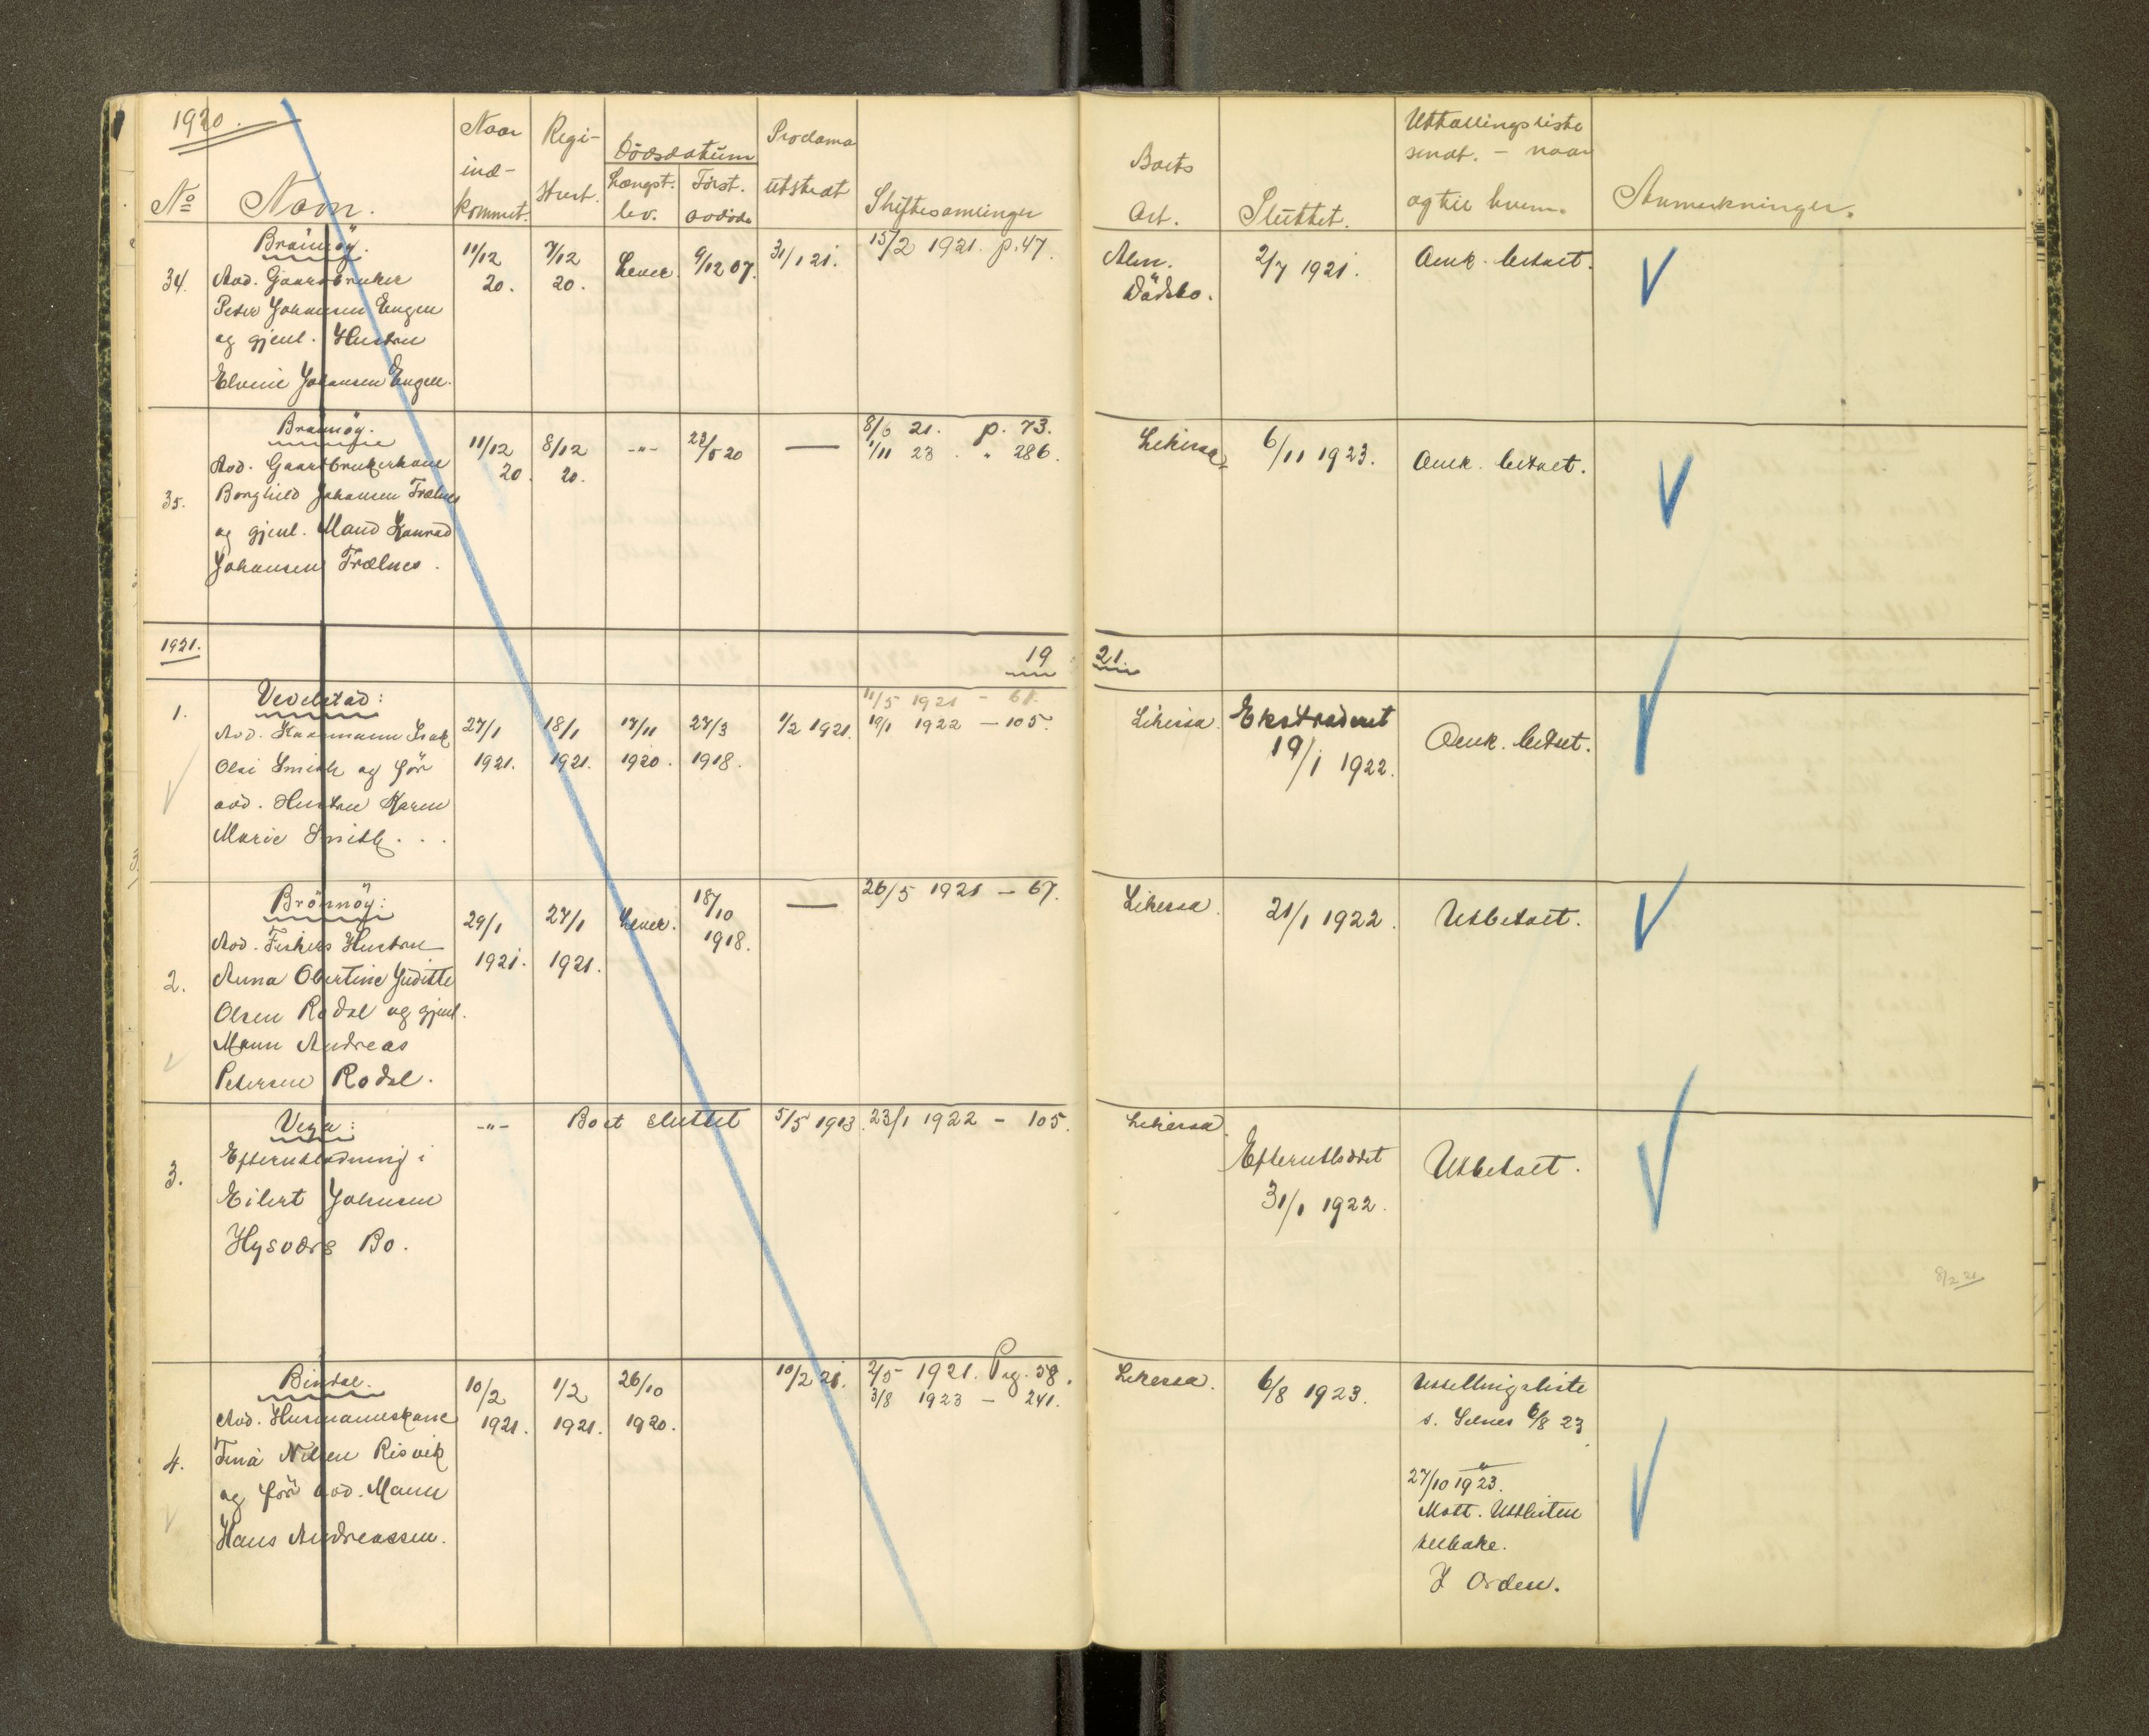 1920.
No Navn. Naar ind-kommet. Regi-strert. Dödsdatum Længst. lev. Först. avdöde Proclama utstedt Skiftesamlinger Boets Art. Sluttet. Utlællingsliste sendt. - naar og til hvem. Anmerkninger.
34. Brönnöy. 11/12 20. 7/12 20. Lever. 9/12 07. 31/1 21. 15/2 1921. p. 47. Alm. Dödsbo. 2/7 1921. Omk. betalt.
Avd. Gaardbruker
Peter Johansen Engen
og gjenl. Hustru
Elvine Johansen Engen.
35. Brönnöy. 11/12 20. 8/12 20. -"- 23/5 20 — 8/6 21. p. 73. Likessa. 6/11 1923. Omk. betalt.
1/11 23. " 286.
Avd. Gaardbrukerkone
Borghild Johansen Trælnes
og gjenl. Mand Konrad
Johansen Trælnes.
1921. 19 21.
1. Vevelstad: 27/1 1921. 18/1 1921. 17/11 1920. 27/3 1918. 1/2 1921. 11/5 1921 - 61. Likessa. Ekstraderet 19/1 1922. Omk. betalt.
19/1 1922 - 105.
Avd. Isak
Olai Smith og för
avd. Hustru Karen
Marie Smith. . .
2. Brönnöy: 29/1 1921. 27/1 1921. Lever. 18/10 1918. — 26/5 1921 - 67. Likessa. 21/1 1922. Utbetalt.
Avd. Fiskers Hustru
Anna Obertine Juditte
Olsen Rodal og gjenl.
Mann Andreas
Petersen Rodal.
3. Vega: -"- Boet sluttet 5/5 1913. 23/1 1922 - 105. Likessa. Efterutloddet 31/1 1922. Utbetalt.
Efterutlodning i
Eilert Johnsen
Hysværs Bo.
8/2 21
4. Bindal. 10/2 1921. 1/2 1921. 26/10 1920. 10/2 21. 2/5 1921. Pag. 58. Likessa. 6/8 1923. Utlellingsliste
3/8 1923 - 241.
s. Selnes 6/8 23
Avd. Husmannskone
Tina Nilsen Risvik
og för avd. Mann
Hans Andreassen.
27/10 1923.
Mott. Utlisten
tilbake.
I Orden.